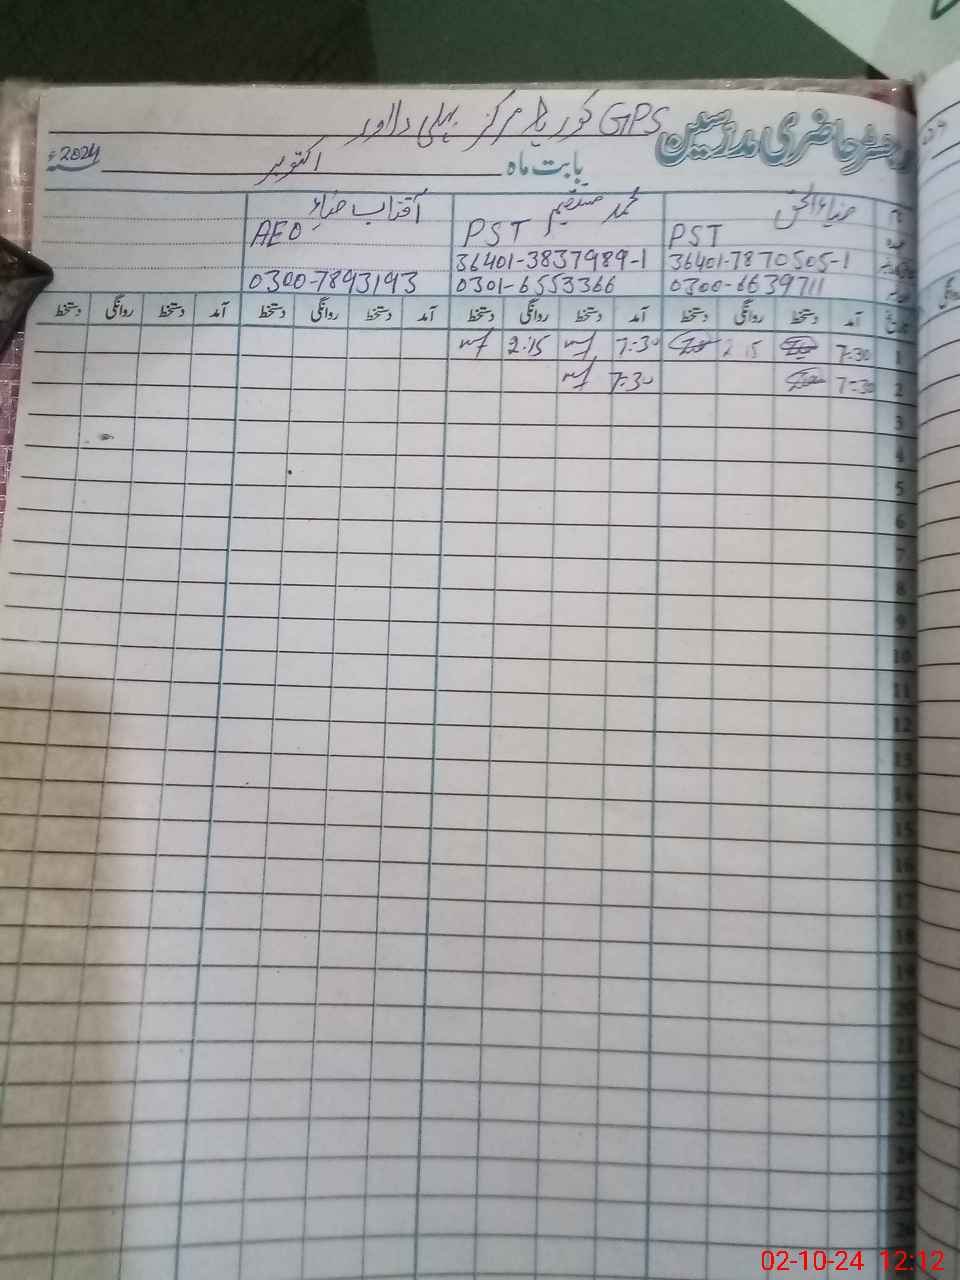 رجسٹر حاضری مدرسین GPS کوریا مرکز پہلی دلاور
بابت ماہ اکتوبر 2024ء
نام ضیاء الحق محمد مستقیم آفتاب ضیاء
عہدہ PST PST AEO
36401-7870505-1 36401-3837989-1
0300-6639711 0301-6553366 0300-7893193
آمد دستخط روانگی دستخط آمد دستخط روانگی دستخط آمد دستخط روانگی دستخط آمد دستخط روانگی دستخط
1 7:30 2:15 7:30 2:15
2 7:30 7:30
3
4
5
6
7
8
9
10
11
12
13
14
15
16
17
18
19
20
21
22
23
24
25
26
روانگی
02-10-24 12:12